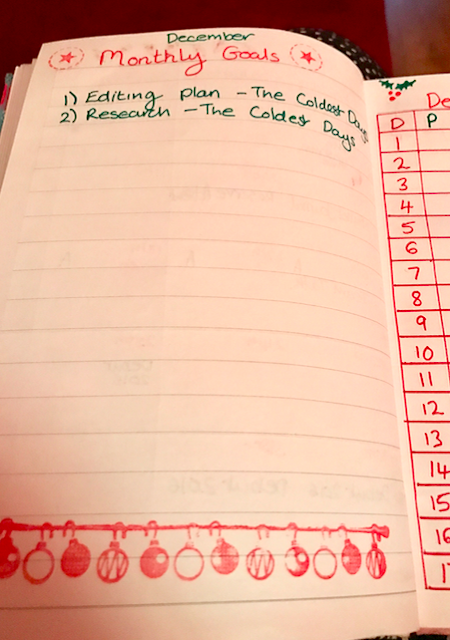 December
Monthly Goals
1) Editing plan - The Coldest Days
2) Research - The Coldest Days
De
D P
1
2
3
4
5
6
7
8
9
10
11
12
13
14
15
16